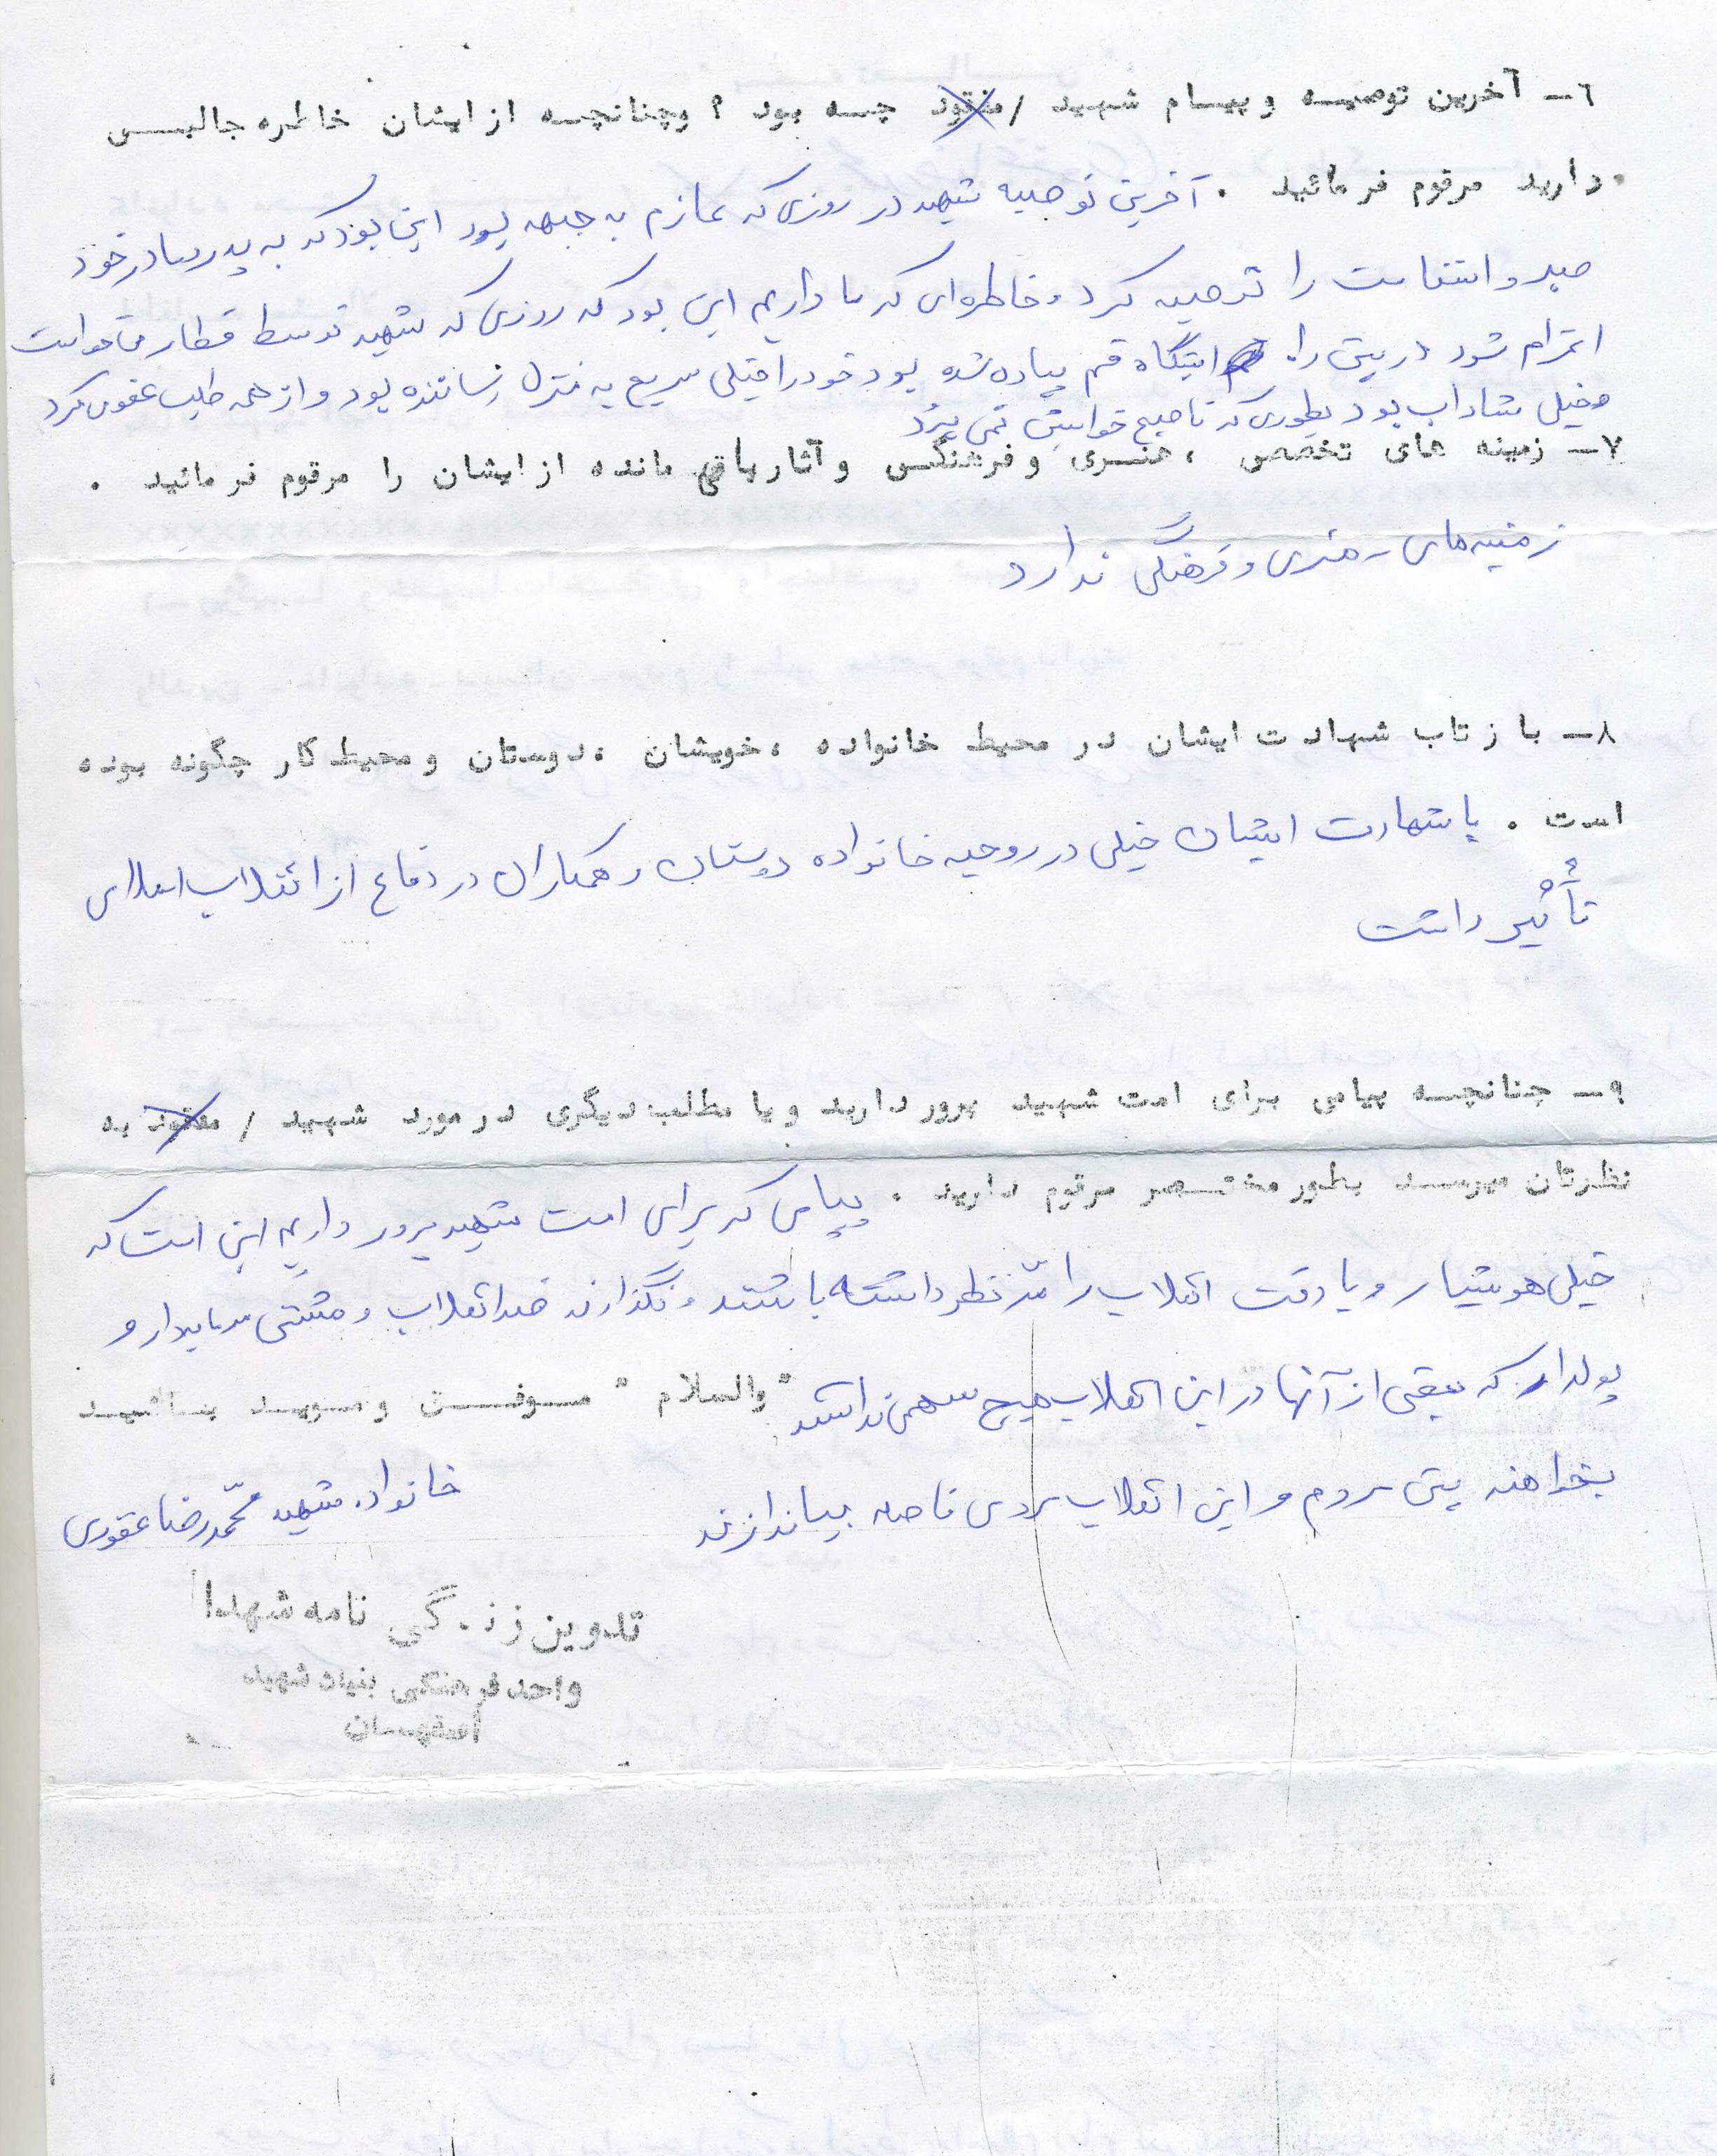 ٦ــ آخرین توصیه و پیام شهید /مفقود چه بود ؟ وچنانچه از ایشان خاطره جالبی
دارید مرقوم فرمائید . آخرین توصیه شهید در روزی که عازم به جبهه بود این بود که به پدر و مادر خود
صبر و استقامت را توصیه کرد و خاطره‌ای که ما داریم این بود که روزی که شهید توسط قطار می‌خواست
اعزام شود در بین راه ایستگاه قم پیاده شده بود خود را خیلی سریع به منزل رسانده بود و از همه طلب عفو می‌کرد
و خیلی شاداب بود بطوری که تا صبح خوابش نمی‌برد
٧ــ زمینه های تخصصی ، هنری و فرهنگی و آثار باقی مانده از ایشان را مرقوم فرمائید .
زمینه‌های ـ هنری و فرهنگی ندارد
٨ــ باز تاب شهادت ایشان در محیط خانواده ، خویشان ، دوستان و محیط کار چگونه بوده
است . با شهادت ایشان خیلی در روحیه خانواده دوستان و همکاران در دفاع از انقلاب اسلامی
تأثیر داشت
٩ــ چنانچه پیامی برای امت شهید پرور دارید و یا مطلب دیگری در مورد شهید / مفقود به
نظرتان میرسد بطور مختصر مرقوم دارید . پیامی که برای امت شهید پرور داریم این است که
خیلی هوشیار و با دقت انقلاب را مدّ نظر داشته باشند و نگذارند ضد انقلاب و مشتی سرمایدار و
پولدار که بعضی از آنها در این انقلاب هیچ سهمی نداشتند " والسلام " موفق و موید باشید
بخواهند بین مردم و این انقلاب مردمی فاصله بیاندازند
خانواده شهید محمّد رضا غفوری
تدوین زندگی نامه شهدا
واحد فرهنگی بنیاد شهید
اصفهان